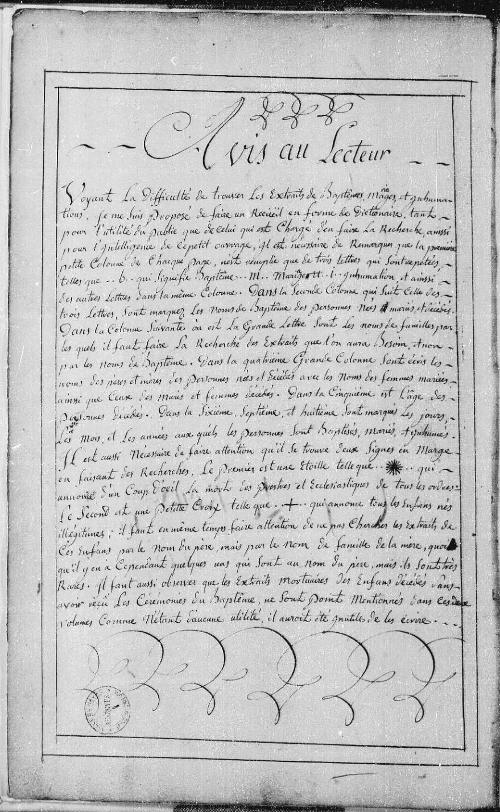 Avis au Lecteur
Voyant La Difficulté de trouver Les Extraits de Baptêmes, Mariages, et Inhuma-
tions, je me suis Proposé de faire un Recüeil en forme de Dictionaire, tant
pour l'utilité du publie que de celui qui est Chargé d'en faire La Recherche, aussi
pour l'Intelligence de ce petit ouvrage, Il est necessaire de Remarquer que la premiere
petite Colonne de Chaque page, n'est remplie que de trois Lettres qui sont repetées,
telles que -- b. qui signifie Baptême -- M... Mariage et -- i. -- inhumation et ainsi
des autres Lettres dans la même Colonne. Dans la Seconde Colonne qui suit Celle des
trois Lettres, sont marquez Les Noms de Baptême des personnes Nés, mariés et décédés.
Dans la Colonne Suivante où est La Grande Lettre sont les noms de familles par
les quels il faut faire La Recherche des Extraits que l'on aura Besoin, et non
par les noms de Baptême. Dans la quatriéme Grande Colonne sont écris les
noms des peres et meres des Personnes nés et décédés avec les Noms des femmes mariées
ainsi que Ceux des Maris et femmes décédés. Dans la Cinquiéme est l'âge des
Personnes décédés. Dans la Sixiéme, Septiéme, et huitiéme sont marqués les jours,
Les Mois, et Les années aux quels les personnes sont Baptisés, mariés, et inhumés.
Il est aussi Necessaire de faire attention qu'il se trouve deux Signes en Marge
en faisant des Recherches, Le Premier est une Etoille telle que .. ✹ .. qui
annonce d'un Coup d'oeil La mort des prestres et Ecclesiastiques de tous les ordres
Le Second est une Petite Croix telle que .. + .. qui annonce tous les Enfans nés
illégitimes; il faut en même temps faire attention de ne pas Chercher les Extraits de
Ces Enfans par le Nom du pere, mais par le nom de famille de la mere, quoi
qu'il y en a Cependant quelques uns qui sont au nom du pere, mais ils sont très
Rares. Il faut aussi observer que les Extraits mortuaires des Enfans décédés sans
avoir reçû Les Cérémonies du Baptême, ne sont point Mentionnés dans ces deux
volumes Comme N'étant d'aucune utilité, il auroit été inutile de les écrire. ...